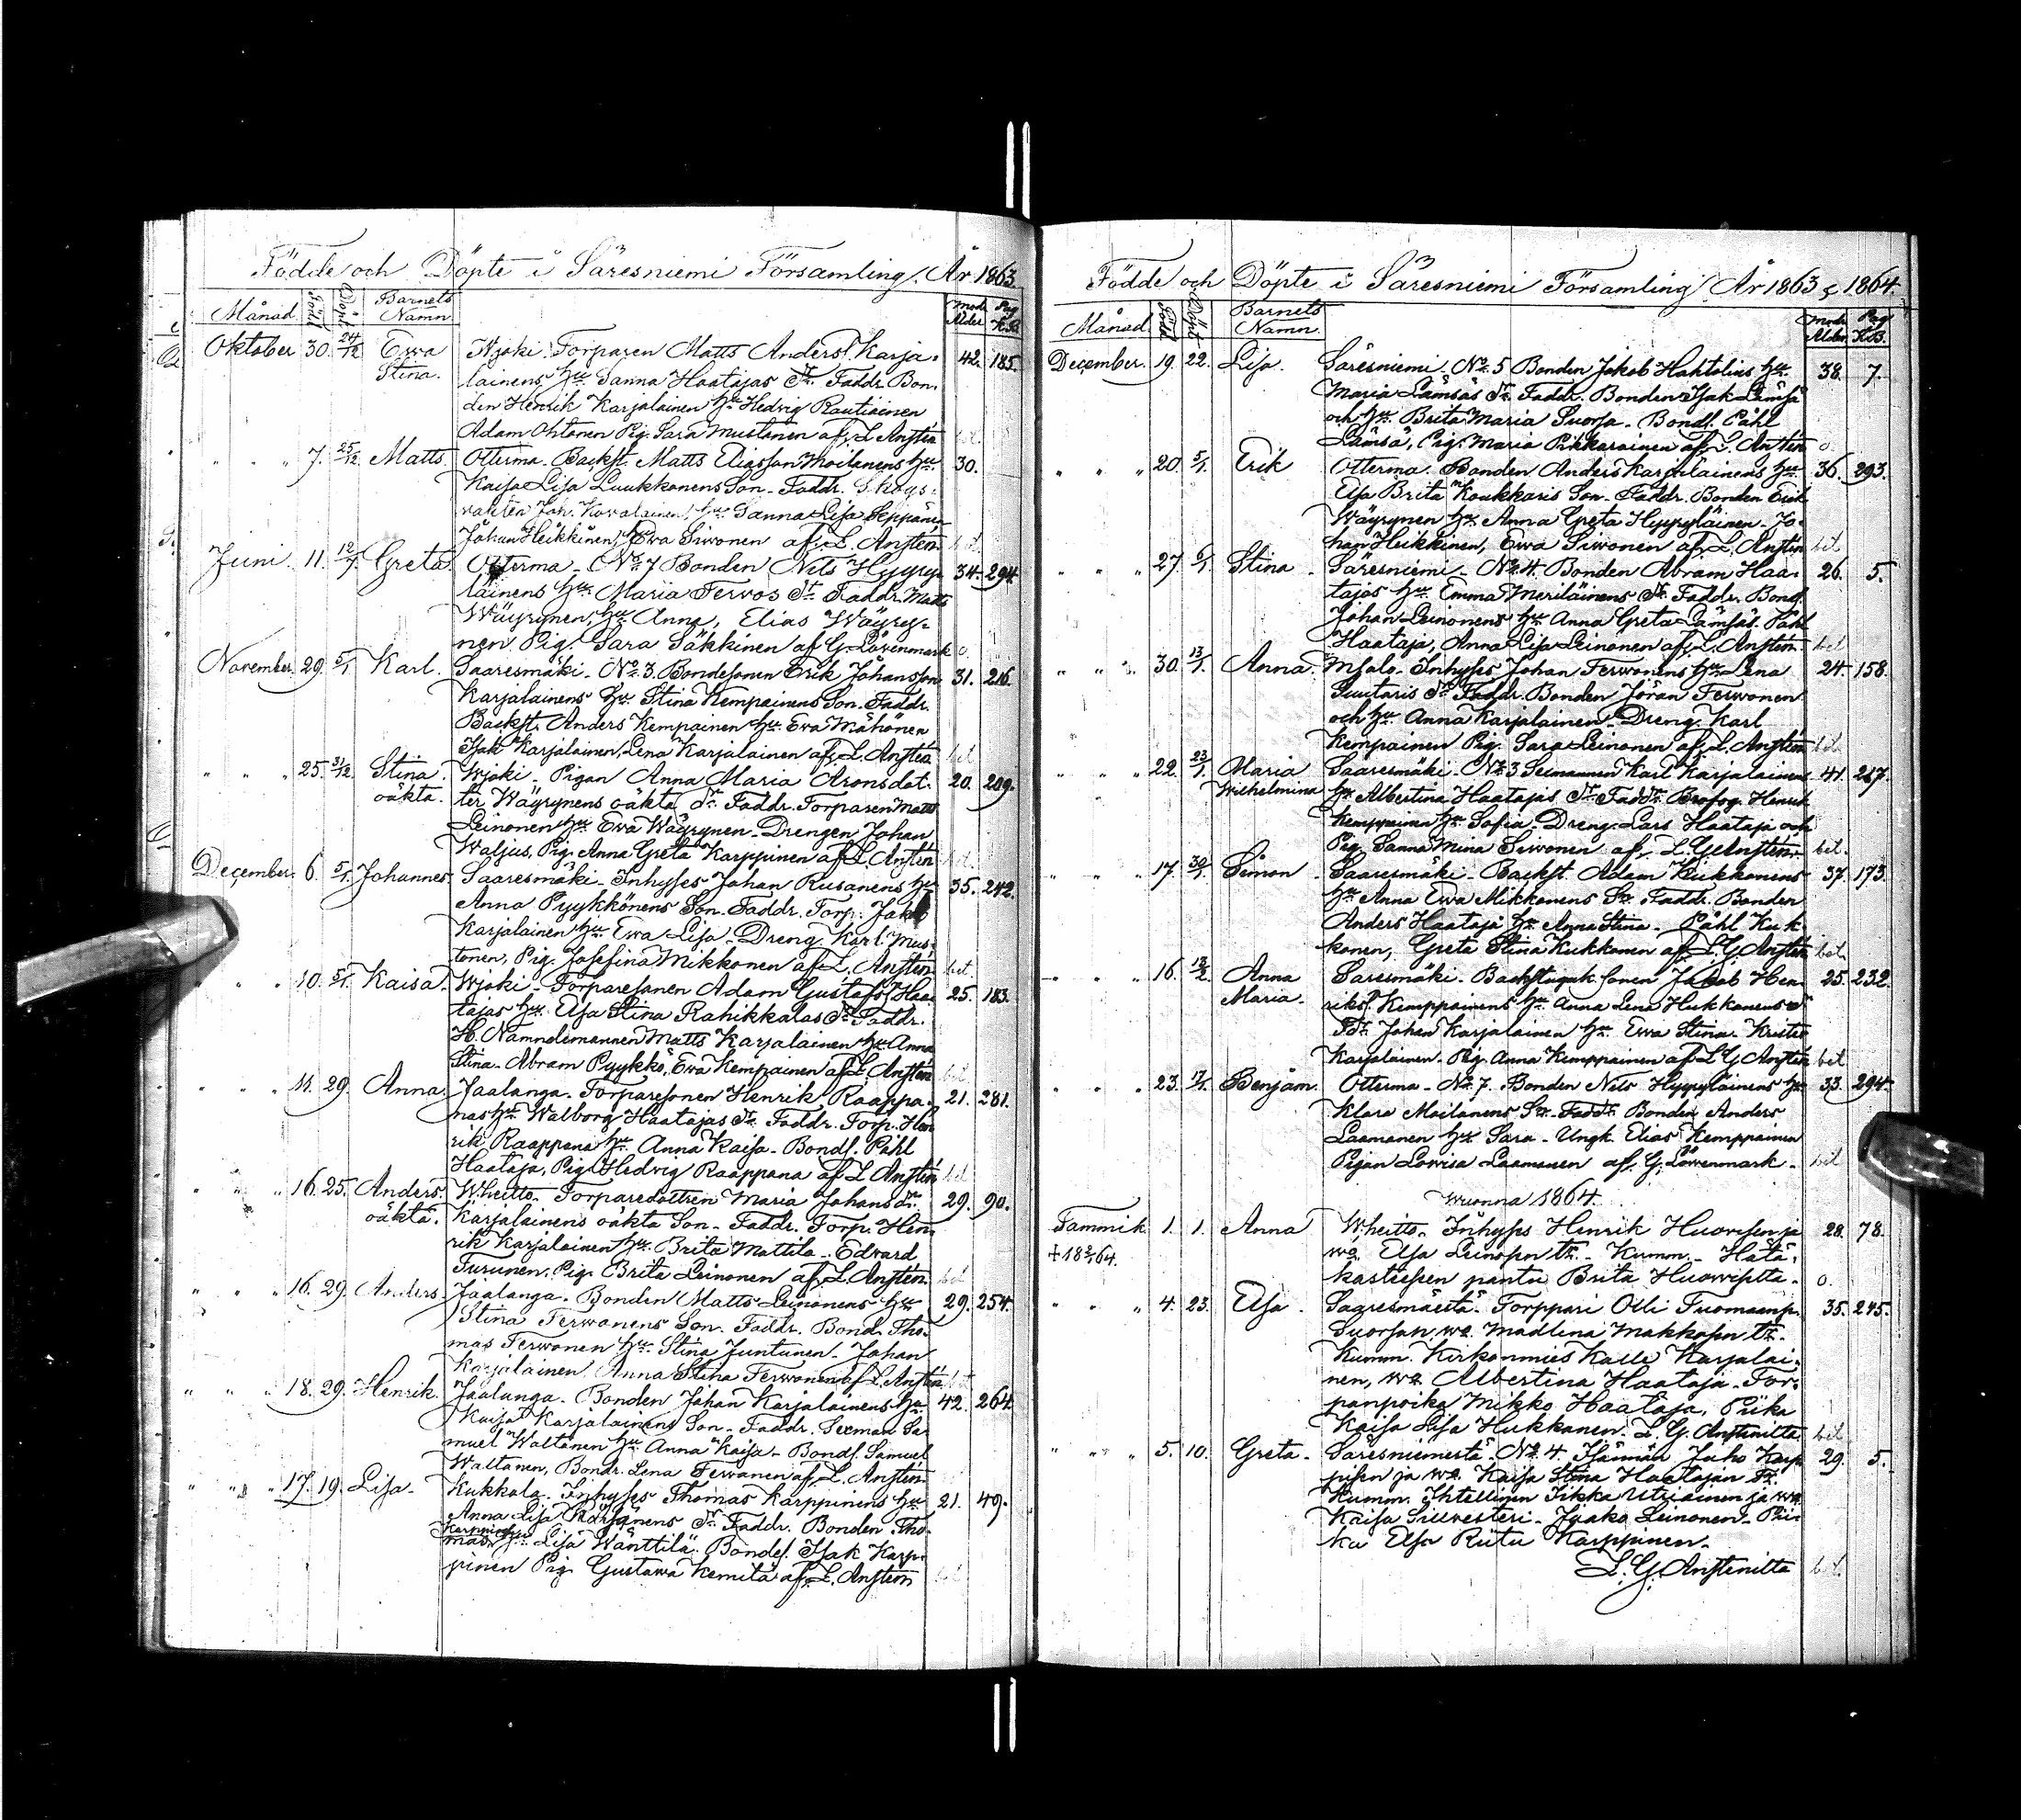 Födde och Döpte i Säresniemi Församling År 1863.
Månad Född Döpt Barnets Namn Mod. Ålder Pag. K.B.
Oktober 30. 24/12 Ewa Wjoki. Torparen Matts Anderss. Karja- 42. 185.
Stina. lainens hu Sanna Haatajas Dr. Faddr. Bon-
den Henrik Karjalainen hu Hedvig Rautiainen
Adam Ohtonen Pig. Sara Mustonen af L. Anstén bet.
" " 7. 25/12 Matts. Otterma. Backst. Matts Eliasson Moilanens hu 30.
Kaisa Lisa Luukkonens Son. Faddr. Skogs-
vakten Joh. Kovalainen, hu Sanna Lisa Seppänen
Johan Heikkinen, Ewa Siwonen af L. Anstén bet.
Juni 11. 12/7 Greta. Otterma. No 7 Bonden Nils Hyyry- 34. 294.
läinens hu Maria Tervos Dr. Faddr. Matts
Wäyrynen, hu Anna, Elias Wäyry-
nen Pig. Sara Säkkinen af G. Löwenmark o.
November 29. 5/1 Karl. Saaresmäki. No 3. Bondesonen Erik Johansson 31. 216.
Karjalainens hu Stina Kempainens Son. Faddr.
Backst. Anders Kempainen hu Ewa Mähönen
Isak Karjalainen, Lena Karjalainen af L. Anstén bet.
" " 25. 31/12 Stina Wjoki. Pigan Anna Maria Aronsdot- 20. 209.
oäkta. ter Wäyrynens oäkta Dr. Faddr. Torparen Matts
Leinonen hu Ewa Wäyrynen. Drengen Johan
Waljus, Pig. Anna Greta Karppinen af L. Anstén bet.
December 6. 5/1 Johannes. Saaresmäki. Inhyses Johan Rusanens hu 35. 242.
Anna Pyykkönens Son. Faddr. Torp. Jakob
Karjalainen hu Ewa Lisa. Dreng. Karl Mus-
tonen, Pig. Josefina Mikkonen af L. Anstén bet.
" " 10. 5/1 Kaisa. Wjoki. Torparesonen Adam Gustafs. Haa- 25. 183.
tajas hu Elsa Stina Rahikkalas Dr. Faddr.
H. Nämndemannen Matts Karjalainen hu Anna
Stina. Abram Pyykkö, Ewa Kempainen af L. Anstén bet
" " 11. 29. Anna. Jaalanga. Torparesonen Henrik Raappa- 21. 281.
nas hu Walborg Haatajas Dr. Faddr. Torp. Hen-
rik Raappana hu Anna Kaisa. Bonds. Påhl
Haataja, Pig. Hedvig Raappana af L. Anstén bet
" " 16. 25. Anders. Wheitto. Torparedottren Maria Johansdr. 29. 90.
oäkta. Karjalainens oäkta Son. Faddr. Torp. Hen-
rik Karjalainen hu Brita Mattila. Edvard
Turunen, Pig. Brita Leinonen af L. Anstén. bet
" " 16. 29. Anders. Jaalanga. Bonden Matts Leinonens hu 29. 254.
Stina Terwonens Son. Faddr. Bond. Tho-
mas Terwonen hu Stina Juntunen. Johan
Karjalainen, Anna Stina Terwonen af L. Anstén bet
" " 18. 29. Henrik. Jaalanga. Bonden Johan Karjalainens hu 42. 264.
Kaisa Karjalainens Son. Faddr. Sexman Sa-
muel Waltanen hu Anna Kaisa. Bonds. Samuel
Waltanen, Bondr. Lena Terwonen af L. Anstén
" " 17. 19. Lisa. Kukkola. Inhyses Thomas Karppinens hu 21. 49.
Anna Lisa Räisänens Dr. Faddr. Bonden Tho-
mas Karppinen hu Lisa Wänttilä. Bondes. Isak Karp-
pinen Pig. Gustawa Kemilä af L. Anstén bet
Födde och Döpte i Säresniemi Församling År 1863 & 1864.
Månad Född Döpt Barnets Namn. Mod. Ålder Pag. K.B.
December. 19. 22. Lisa. Säresniemi. No 5 Bonden Jakob Hahtolins hu 38. 7.
Maria Lämsäs Dr. Faddr. Bonden Isak Lämsä
och hu Brita Maria Suorsa. Bonds. Påhl
Lämsä, Pig. Maria Pikkarainen af L. Anstén o
" " 20. 5/1. Erik Otterma. Bonden Anders Karjalainens hu 36. 293.
Elsa Brita Koukkaris Son. Faddr. Bonden Erik
Wäyrynen hu Anna Greta Hyyryläinen. Jo-
han Heikkinen, Ewa Siwonen af L. Anstén bet
" " 27. 6/1. Stina. Säresniemi. No 4. Bonden Abram Haa- 26. 5.
tajas hu Emma Meriläinens Dr. Faddr. Bond.
Johan Leinonens hu Anna Greta Lämsäs. Påhl
Haataja, Anna Lisa Leinonen af L. Anstén. bet
" " 30. 13/1. Anna. Mjalo. Inhyses Johan Terwonens hu Lena 24. 158.
Luutaris Dr. Faddr. Bonden Jöran Terwonen
och hu Anna Karjalainen. Dreng. Karl
Kempainen Pig. Sara Leinonen af L. Anstén bet
" " 22. 23/1. Maria Saaresmäki. No 3 Sexmannen Karl Karjalainens 41. 217.
Wilhelmina hu Albertina Haatajas Dr. Faddr. Brofog. Henrik
Kemppainen hu Sofia. Dreng. Lars Haataja och
Pig. Sanna Mina Siwonen af L. G. Anstén. bet.
" " 17. 30/1. Simon. Saaresmäki. Backst. Adam Kukkonens 37. 173.
hu Anna Ewa Mikkonens Sn. Faddr. Bonden
Anders Haataja hu Anna Stina. Påhl Kuk-
konen, Greta Stina Kukkonen af L. G. Anstén bet.
" " 16. 13/2. Anna Saresmäki. Backstuguk. sonen Jakob Hen- 25. 232.
Maria. riks. Kemppainens hu Anna Lena Hukkanens Dr
Fdr. Johan Karjalainen hu Ewa Stina. Krister
Karjalainen. Pig. Anna Kemppainen af L. G. Anstén bet
" " 23. 17/1. Benjam. Otterma. No 7. Bonden Nils Hyyryläinens hu 33. 294.
Klara Moilanens Sn. Faddr. Bonden Anders
Laamanen hu Sara. Ungk. Elias Kemppainen
Pigan Lovisa Laamanen af G. Löwenmark. bet
Wuonna 1864.
Tammik. 1. 1. Anna Wheitto. Inhyses Henrik Huovisen ja 28. 78.
†18 3/2 64. wa. Elsa Leinosen tr. Kumm. Hätä-
kasteesen pantu Brita Huovislta. o.
" " 4. 23. Elsa. Saaresmäestä. Torppari Olli Tuomaanp. 35. 245.
Suorsan wa. Madlena Makkosen tr.
Kumm. Kirkonmies Kalle Karjalai-
nen, wa Albertina Haataja. Tor-
panpoika Mikko Haataja, Piika
Kaisa Lisa Hukkanen. L. G. Anstenilta bet
" " 5. 10. Greta. Säresniemestä. No 4. Isännän Juho Karp- 29. 5.
pisen ja wa. Kaisa Stina Haatajan Tr.
Kumm. Ihtellinen Iikka Utriainen ja wa.
Kaisa Siilvesteri. Jaako Leinonen. Pii-
ka Elsa Riitu Karppinen.
L. G. Anstenilta bet.